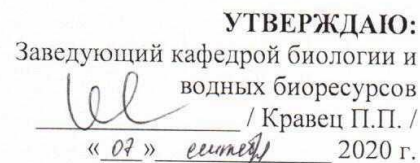 УТВЕРЖДАЮ:
Заведующий кафедрой биологии и
водных биоресурсов
/ Кравец П.П. /
« 07 » сентября 2020 г.